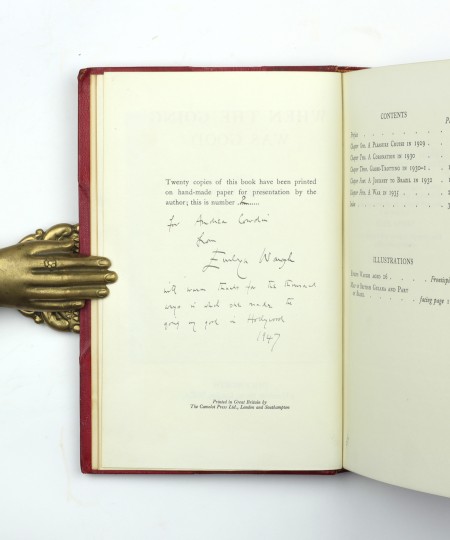 Twenty copies of this book have been printed
on hand-made paper for presentation by the
author; this is number
for Andrea Cowdin
from
Evelyn Waugh
with warm thanks for the thousand
ways in which she made the
going good in Hollywood
1947
Printed in Great Britain by
The Camelot Press Ltd., London and Southampton
CONTENTS
Preface
Chapter One. A Pleasure Cruise in 1929
Chapter Two. A Coronation in 1930
Chapter Three. Globe-Trotting in 1930-1
Chapter Four. A Journey to Brazil in 1932
Chapter Five. A War in 1935
ILLUSTRATIONS
Evelyn Waugh aged 26 Frontispi
Map of British Guiana and Part
of Brazil facing page